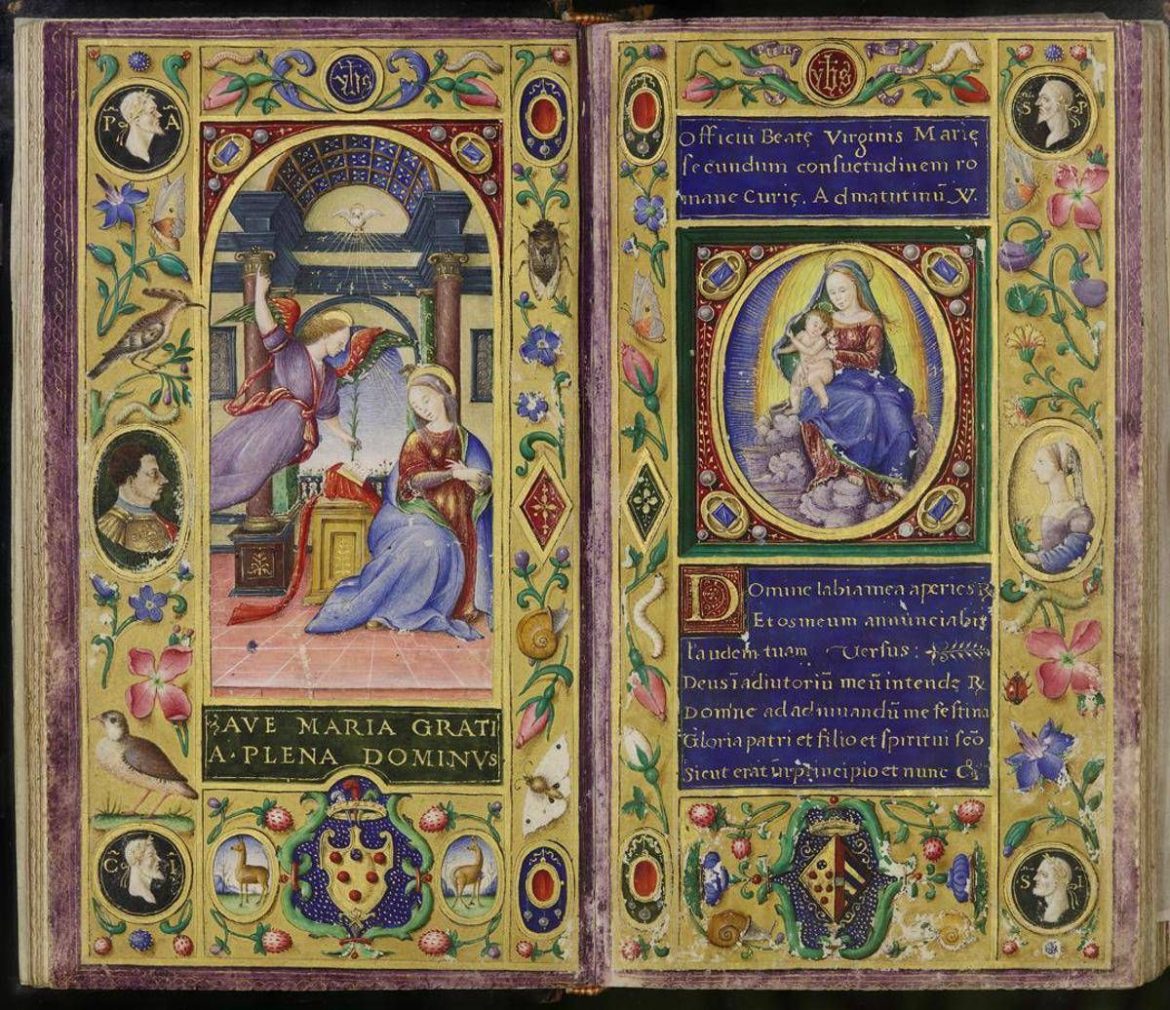 yhs
P A
AVE MARIA GRATI
A · PLENA DOMINVS
C I
yhs
S P
Officiū Beatę Virginis Marię
secundum consuetudinem ro
mane Curię. Ad matutinū ℣.
Domine labia mea aperies ℞
Et os meum annunciabit
laudem tuam Versus:
Deus ī adiutoriū meū intende ℞
Domine ad adiuuandū me festina
Gloria patri et filio et spiritui scō
Sicut erat in principio et nunc &
S I